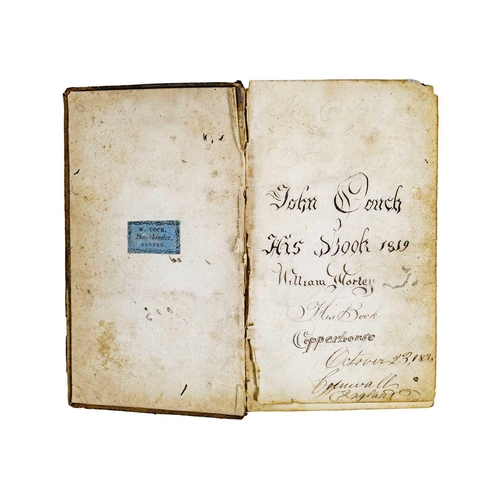 W. COCK,
Bookbinder,
John Couch
His Book 1819
William Morley
His Book
Copperhouse
October 23, 18
Cornwall
England